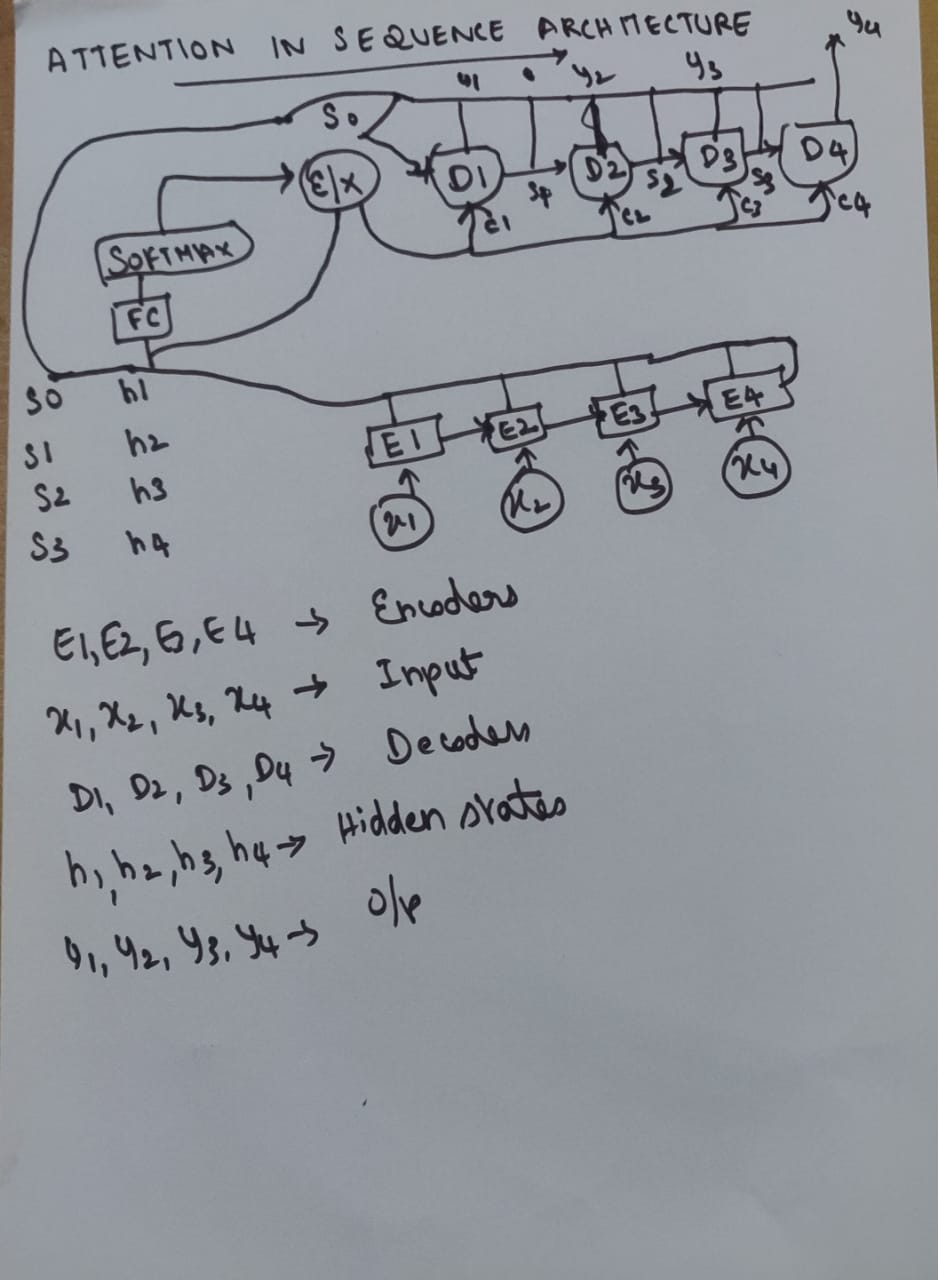 ATTENTION IN SEQUENCE ARCHITECTURE
y1 y2 y3 y4
S0
Σ/x D1 D2 D3 D4
S1 S2 S3
C1 C2 C3 C4
SOFTMAX
FC
S0 h1
S1 h2
S2 h3
S3 h4
E1 E2 E3 E4
x1 x2 x3 x4
E1, E2, E3, E4 → Encoders
x1, x2, x3, x4 → Input
D1, D2, D3, D4 → Decoders
h1, h2, h3, h4 → Hidden states
y1, y2, y3, y4 → O/p